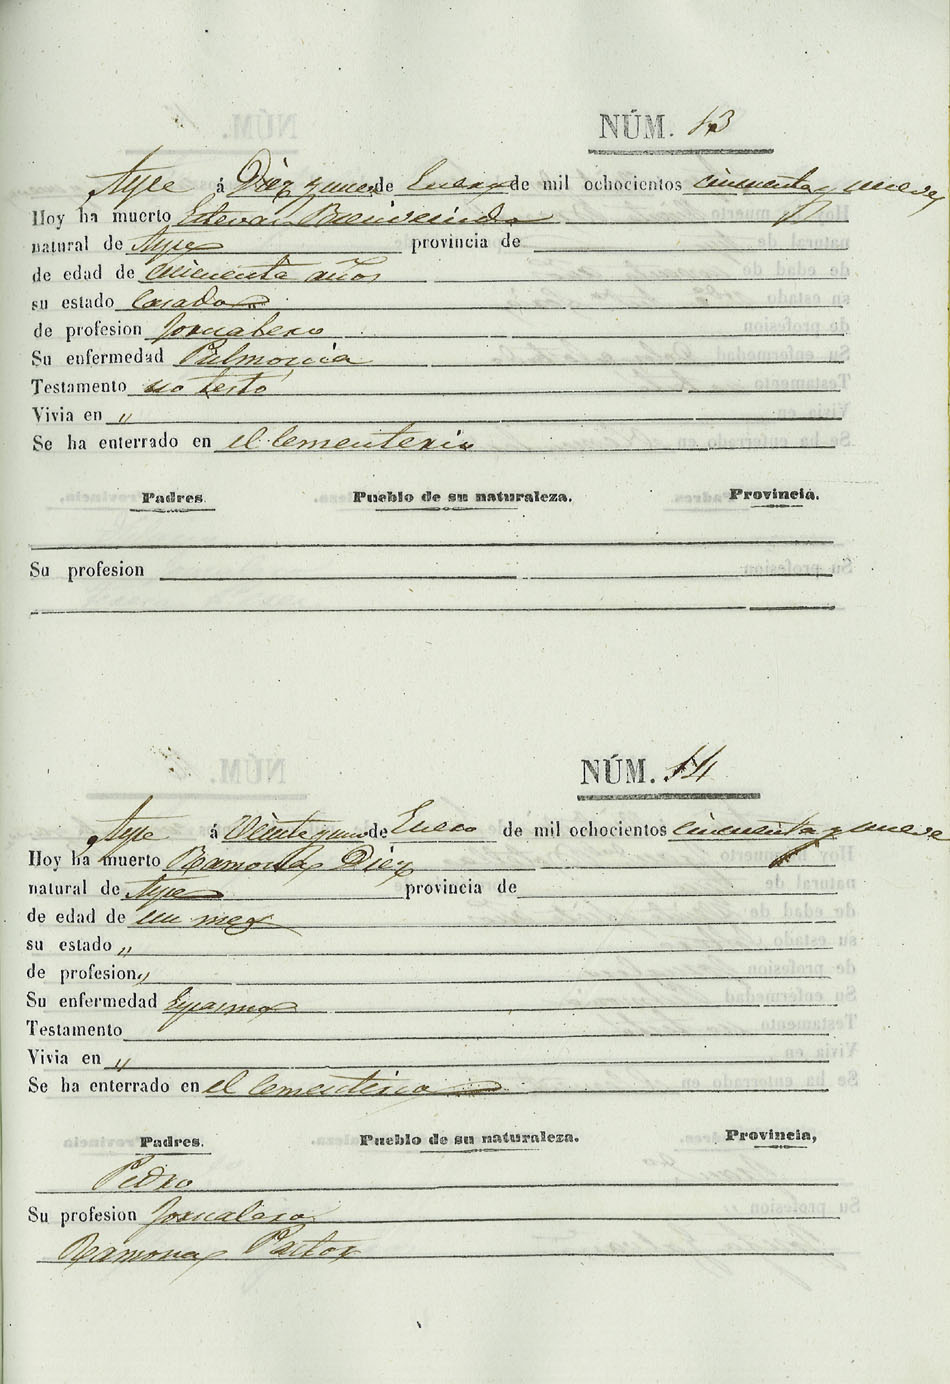 NÚM. 13
Aspe á Diez y nueve de Enero de mil ochocientos cincuenta y nueve
Hoy ha muerto Estevan Bienvenido
natural de Aspe provincia de
de edad de cincuenta años
su estado Casado
de profesion Jornalero
Su enfermedad Pulmonia
Testamento no testó
Vivia en "
Se ha enterrado en el Cementerio
Padres. Pueblo de su naturaleza. Provincia.
Su profesion
NÚM. 14
Aspe á Veinte y uno de Enero de mil ochocientos cincuenta y nueve
Hoy ha muerto Ramona Diez
natural de Aspe provincia de
de edad de un mez
su estado "
de profesion "
Su enfermedad Espasmo
Testamento
Vivia en "
Se ha enterrado en el Cementerio
Padres. Pueblo de su naturaleza. Provincia,
Pedro
Su profesion Jornalero
Ramona Pastor